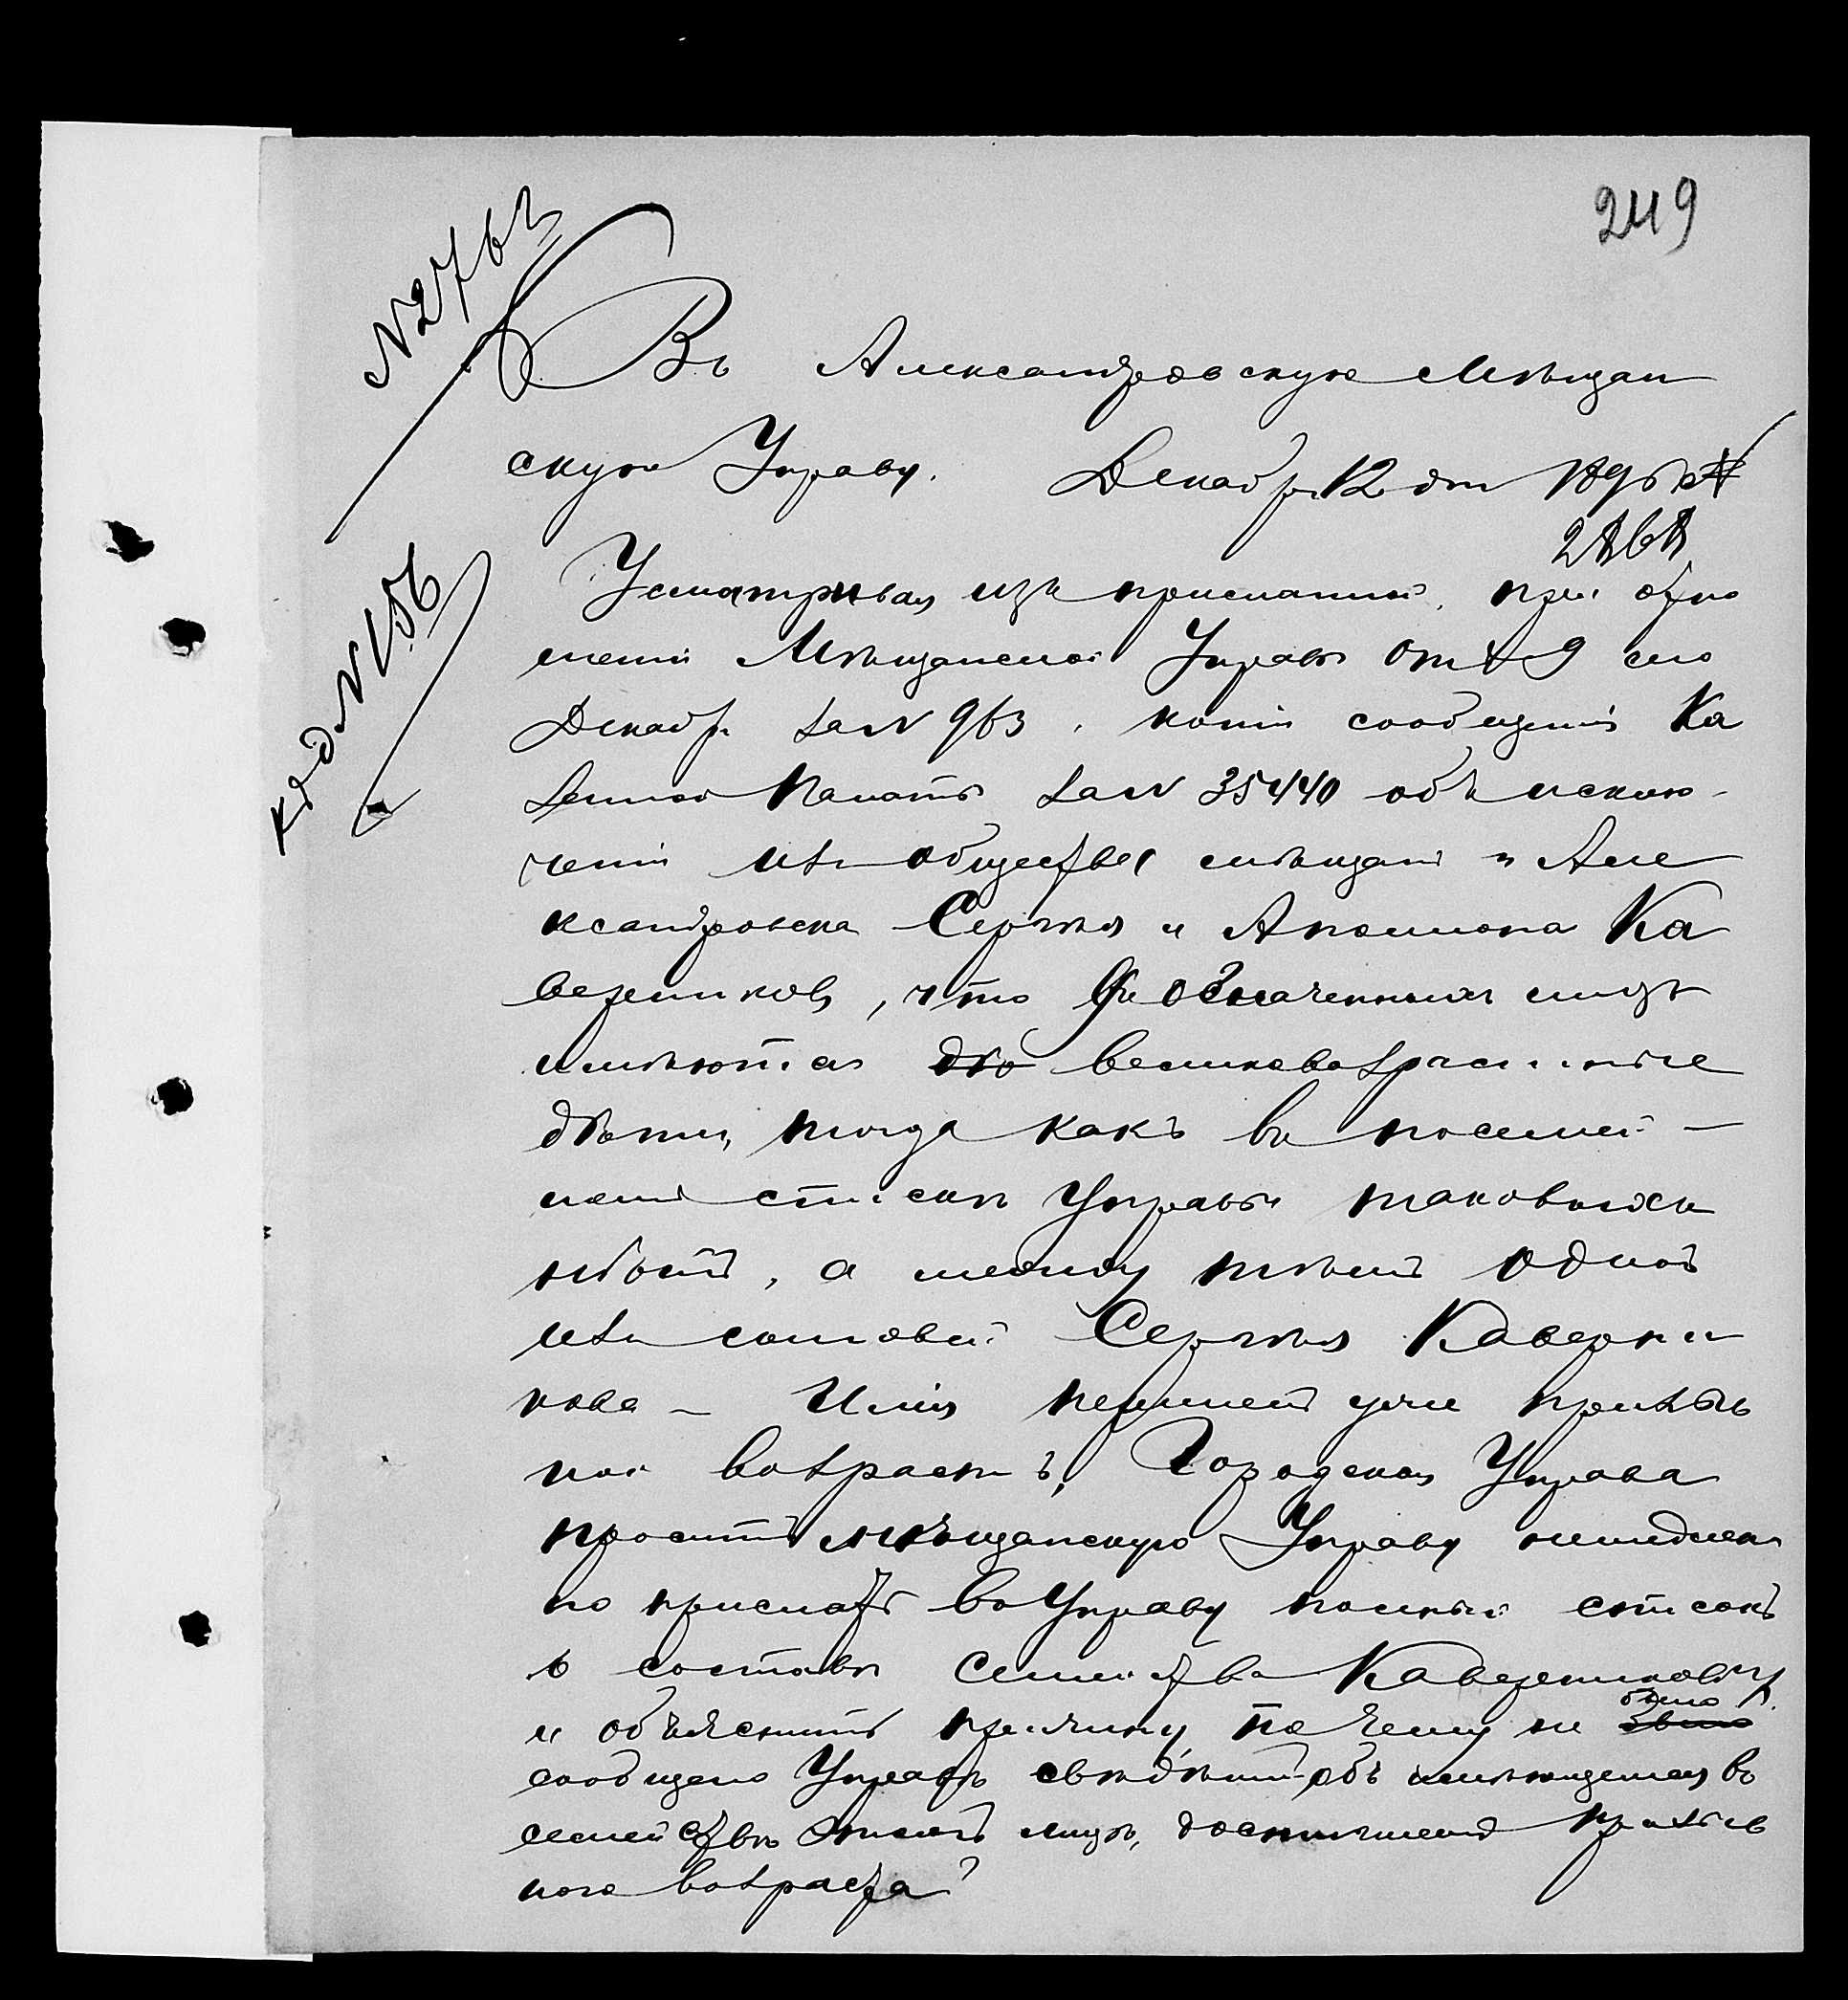 249
№ 2762
Въ Александровскую Мѣщан
скую Управу. Декабря 12 дня 1896 г.
Къ д. № 156
Усматривая изъ присланной при
Мѣщанской Управы отъ 9 сего
Декабря за № 963, копіи сообщенія Ка
зенной Палаты за № 35440 объ исклю-
ченіи изъ общества мѣщанъ г. Але
ксандровска Сергѣя и Аполлона Ка
верниковъ, что у означенныхъ лицъ
имѣются великовозрастные
дѣти, тогда какъ въ посемей-
номъ спискѣ Управы таковыхъ
нѣтъ, а между тѣмъ одной
изъ сыновей Сергѣя Каверни
кова — Илія перешелъ уже призыв
ной возрастъ, Городская Управа
проситъ мѣщанскую Управу немедлен
но прислать въ Управу полный списокъ
о составѣ семейства Каверниковыхъ
и объяснить причину, по чему не было
сообщено Управѣ свѣдѣній объ имѣющемся въ
семействѣ лицъ, достигшемъ призыв
ного возраста?